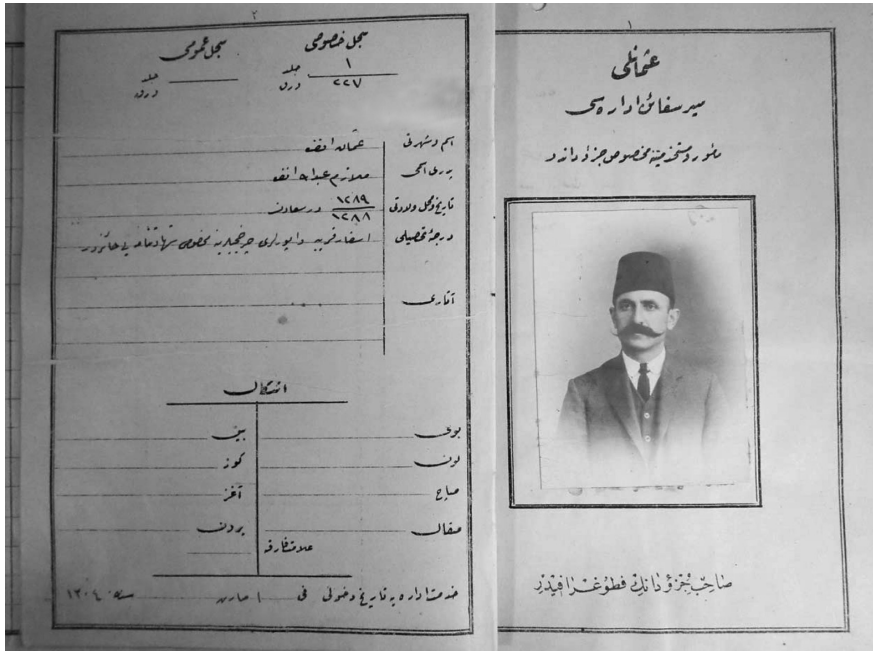 ١
عثمانلى
سير سفائن اداره سى
مأمور و مستخدمينه مخصوص جزؤداندر
صاحب جزؤدانك فطوغرافيدر
٢
سجل خصوصى
سجل عمومى
جلد ١
ورق ٢٢٧
جلد
ورق
اسم و شهرتى عثمان افندى
پدرى اسمى ملازم عبدالله افندى
تاريخ و محل ولادتى ١٢٨٩ ١٢٨٨ درسعادت
درجۀ تحصيلى اسفار قريبه واپورلرى مخصوص شهادتنامه حائزدر
آثارى
اشكال
بوى
بين
لون
كوز
صاچ
آغز
صقال
بورون
علامت فارقه
خدمت اداره يه تاريخ دخولى فى ١ مارت سنه ١٣٠٤